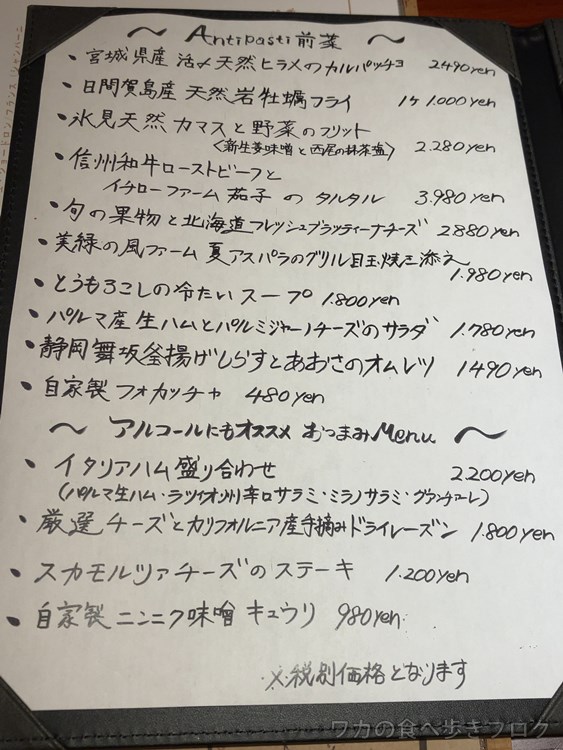 ～ Antipasti 前菜 ～
・宮城県産 活〆天然ヒラメのカルパッチョ 2490yen
・日間賀島産 天然岩牡蠣フライ 1ヶ 1.000yen
・氷見天然カマスと野菜のフリット
〈新生姜味噌と西尾の抹茶塩〉 2.280yen
・信州和牛ローストビーフと
イチローファーム茄子のタルタル 3.980yen
・旬の果物と北海道フレッシュブラッティーナチーズ 2880yen
・美緑の風ファーム 夏アスパラのグリル目玉焼き添え
1.980yen
・とうもろこしの冷たいスープ 1.800yen
・パルマ産生ハムとパルミジャーノチーズのサラダ 1.780yen
・静岡舞坂釜揚げしらすとあおさのオムレツ 1490yen
・自家製フォカッチャ 480yen
～ アルコールにもオススメ おつまみMenu ～
・イタリアハム盛り合わせ 2.200yen
(パルマ生ハム・ラツィオ州辛口サラミ・ミラノサラミ・グアンチャーレ)
・厳選チーズとカリフォルニア産手摘みドライレーズン 1.800yen
・スカモルツァチーズのステーキ 1.200yen
・自家製ニンニク味噌キュウリ 980yen
※税別価格となります
ワカの食べ歩きブログ